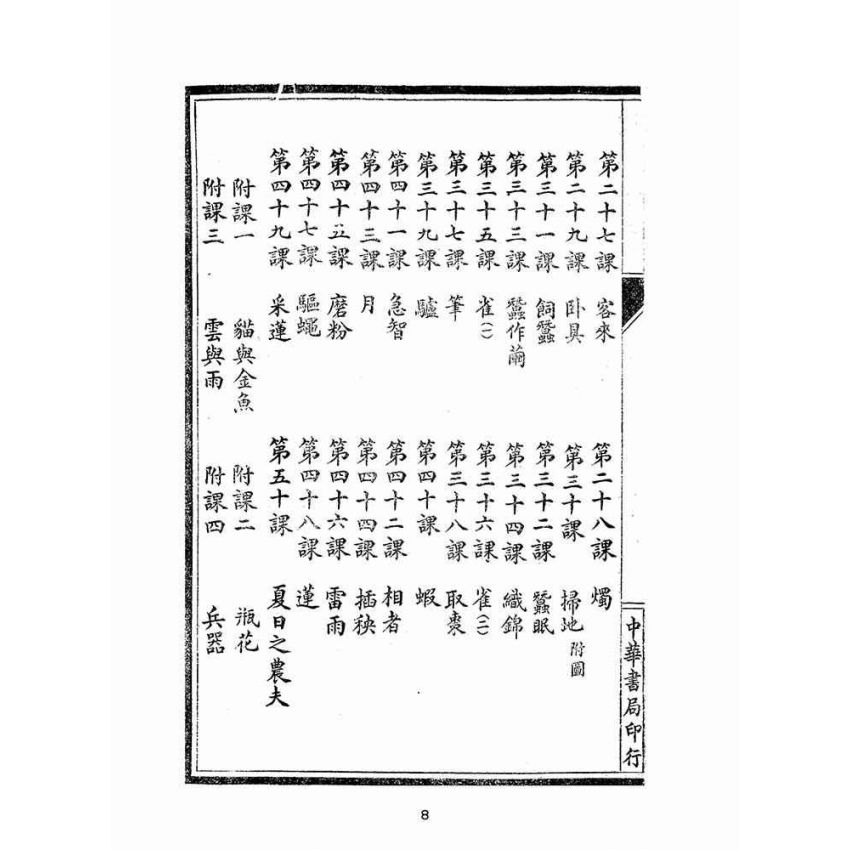 第二十七課 客來 第二十八課 燭
第二十九課 臥具 第三十課 掃地 附圖
第三十一課 飼蠶 第三十二課 蠶眠
第三十三課 蠶作繭 第三十四課 織錦
第三十五課 雀(一) 第三十六課 雀(二)
第三十七課 筆 第三十八課 取棗
第三十九課 驢 第四十課 蝦
第四十一課 急智 第四十二課 相者
第四十三課 月 第四十四課 插秧
第四十五課 磨粉 第四十六課 雷雨
第四十七課 驅蠅 第四十八課 蓮
第四十九課 采蓮 第五十課 夏日之農夫
附課一 貓與金魚 附課二 瓶花
附課三 雲與雨 附課四 兵器
中華書局印行
8